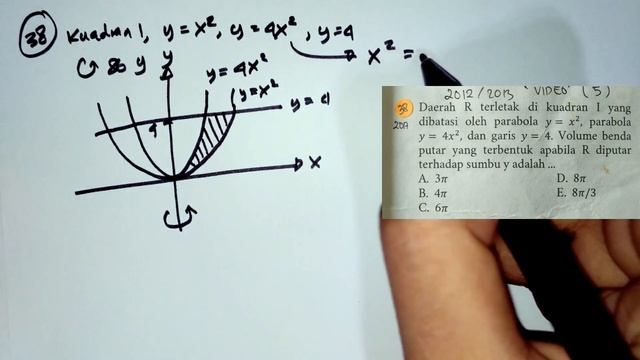 38 Kuadran 1, y = x², y = 4x², y = 4
x² =
80 y
y
y = 4x²
y = x²
y = 4
4
x
2012/2013 "VIDEO" (5)
38 Daerah R terletak di kuadran I yang
20A dibatasi oleh parabola y = x², parabola
y = 4x², dan garis y = 4. Volume benda
putar yang terbentuk apabila R diputar
terhadap sumbu y adalah ...
A. 3π D. 8π
B. 4π E. 8π/3
C. 6π